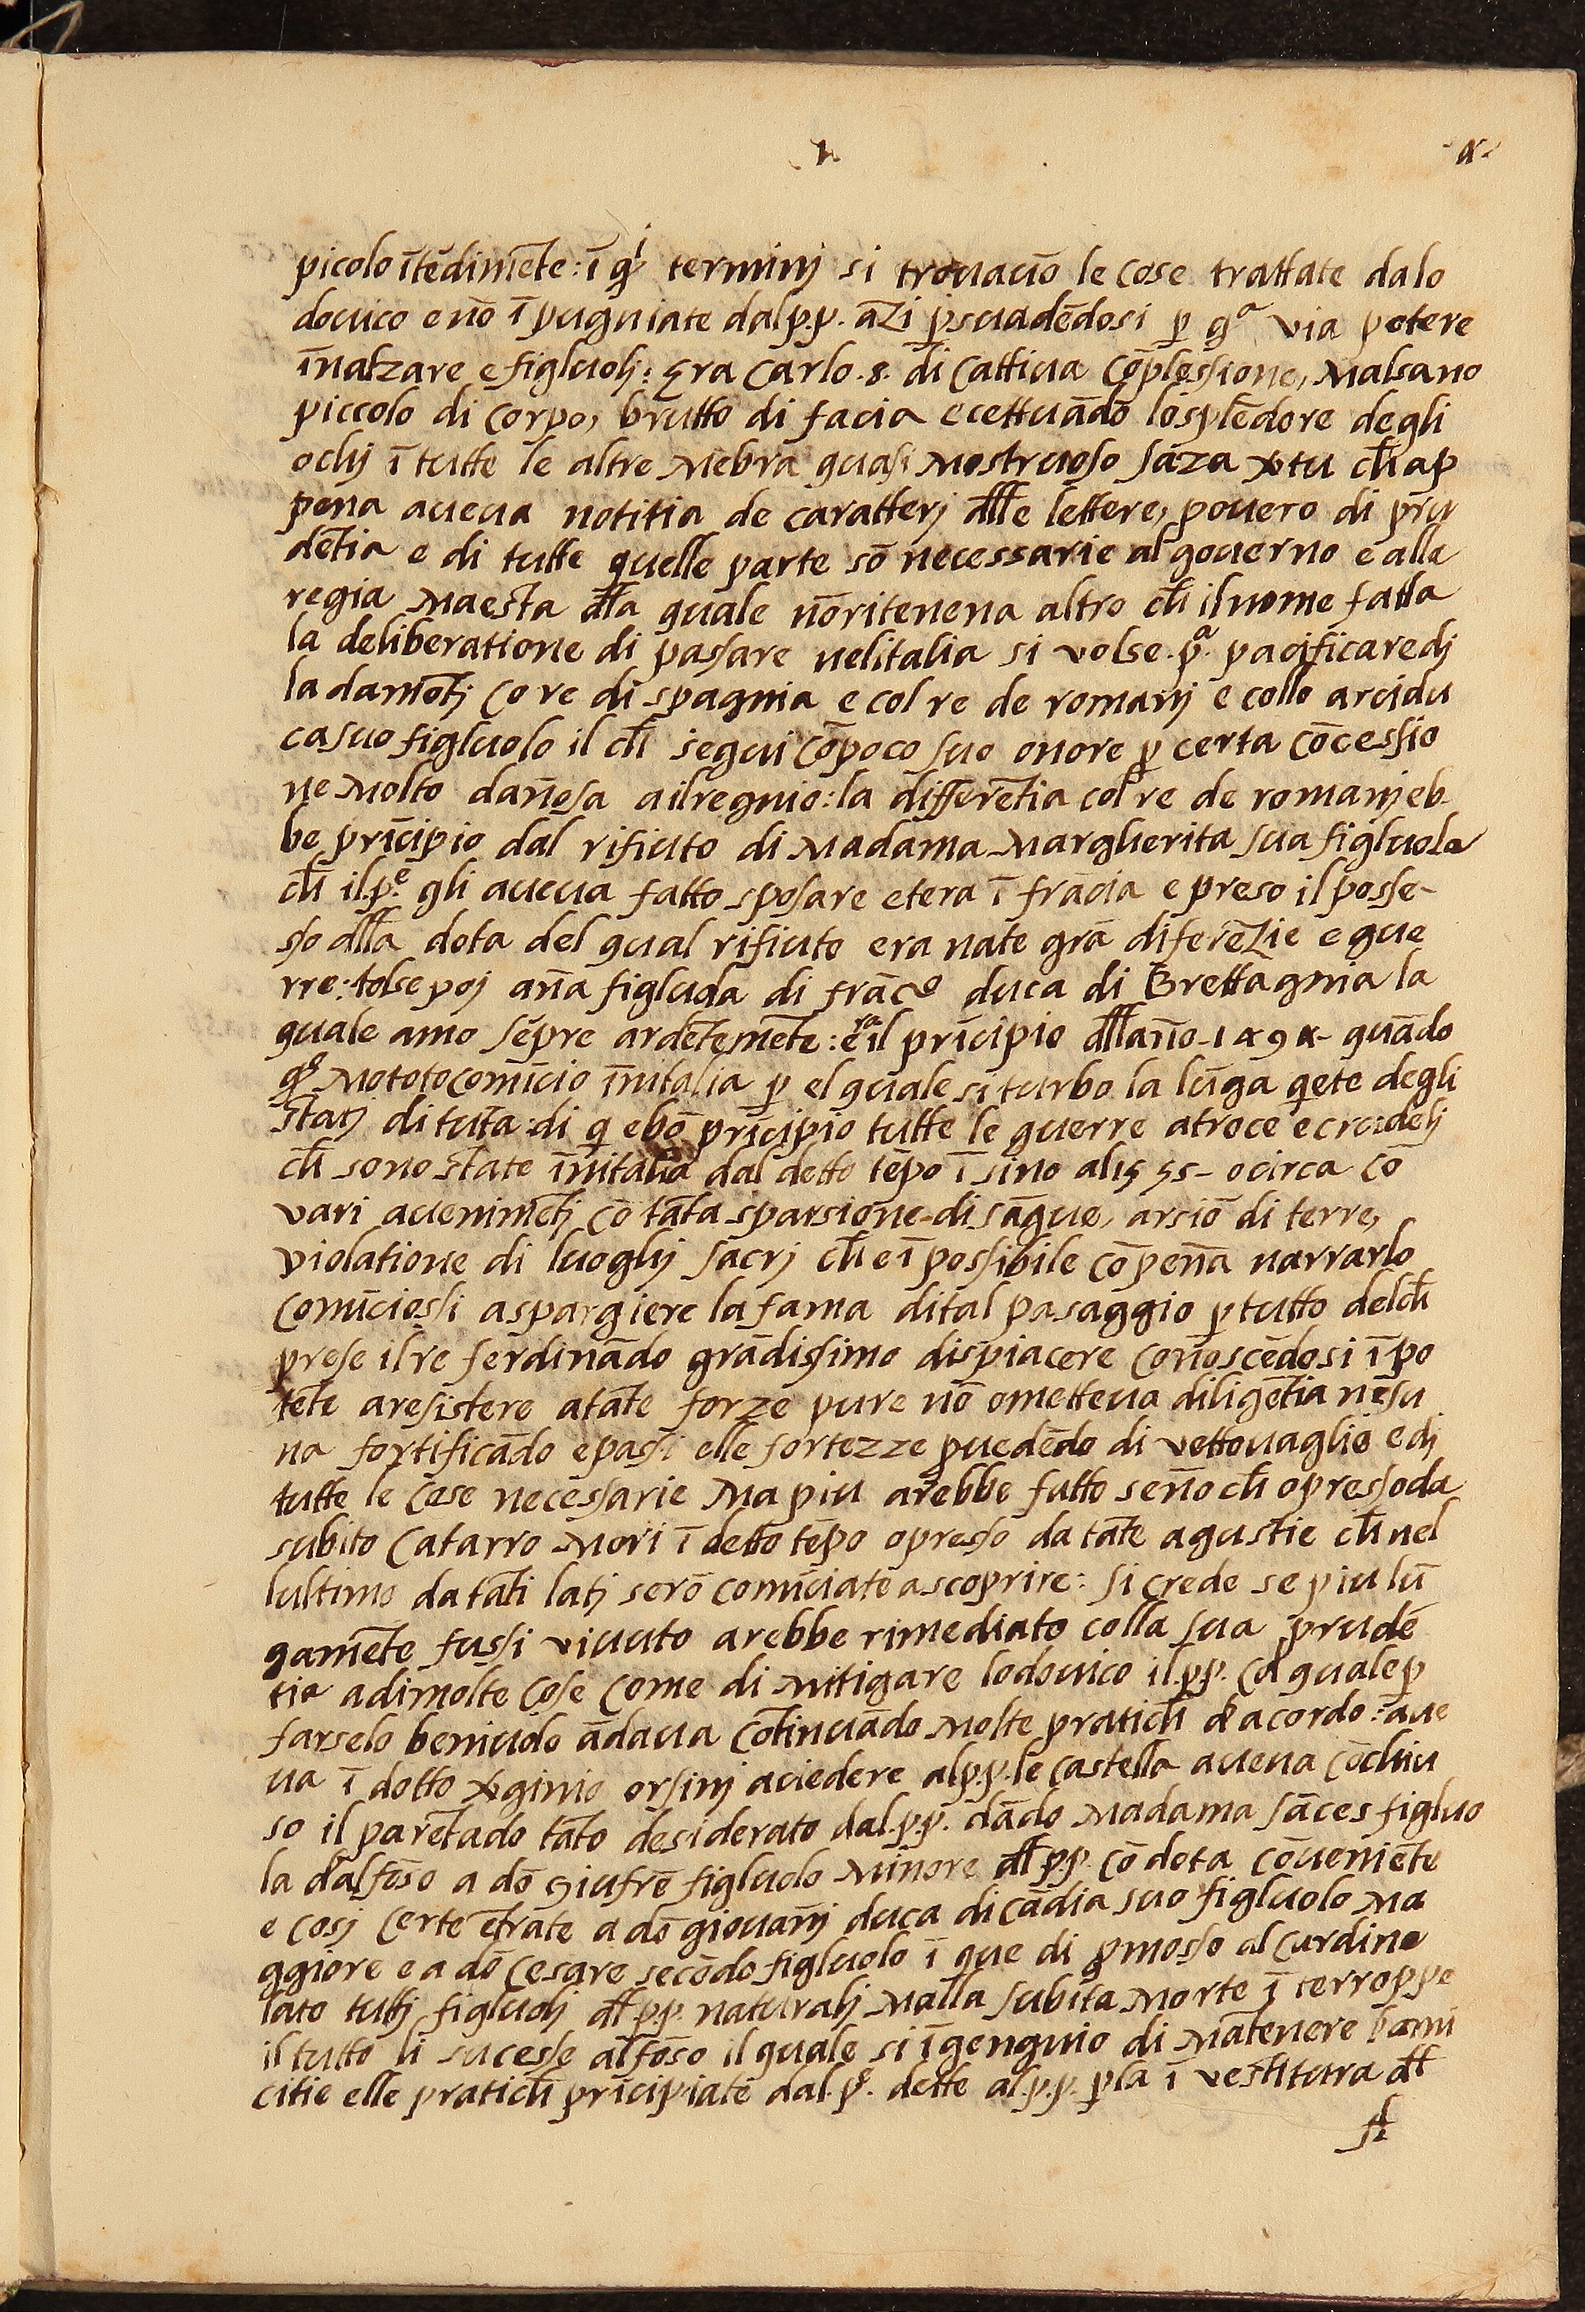 picolo ītēdimēte: ī qͥ terminj si trovavō le cose trattate da lo
dovico e nō ī pugniate dal p.p. āzi p̱suadēdosi p̱ qᵃ via potere
īnalzare e figluolj: Era Carlo .8. di Cattiva cōplessione, Malsano
piccolo di Corpo, brutto di facia ecettuādo losplēdore degli
ochj ī tutte le altre Mēbra quasi Mostruoso sāza xtu ch̄ ap
pena aveva notitia de caratterj dll̄e lettere, povero di pru
dētia e di tutte quelle parte sō necessarie al governo e alla
regia Maesta dll̄a quale nō riteneva altro ch̄ il nome fatta
la deliberatione di passare nelitalia si volse .pᵃ. pacificare dj
la da mōtj Co re di spagnia e col re de romanj e collo arcidu
ca suo figluolo il ch̄ segui cō poco suo onore p̱ certa cōcessio
ne Molto dañosa ailregnio: la differētia col re de romanj eb-
be prīcipio dal rifiuto di Madama Margherita sua figluola
ch̄ il .pᵉ. gli aveva fatto sposare et era ī frācia e preso il posse-
sso dll̄a dota del qual rifiuto era nate grā diferēzie e gue
rre: tolse poj aña figluola di frāco duca di Brettagnia la
quale amo sēpre ardētemēte: era il prīcipio dll̄año-1494- quādo
qᵒ Mototo comīcio īnitalia p̱ el quale si turbo la lūga qete degli
statj di tuta: di q ebō prīcipio tutte le guerre atroce e crudelj
ch̄ sono state īnitalia dal detto tēpo ī sino al 1555- o circa cō
vari avenimētj cō tāta sparsione di sāgue, arsiō di terre,
violatione di luoghj sacrj ch̄ e ī possibile cō pena narrarlo
Comīciossi a spargiere la fama di tal pasaggio p̱ tutto del ch̄
prese il re ferdinādo grādissimo dispiacere conoscēdosi ī po
tēte aresistere a tāte forze pure nō ometteva diligētia nēsu
na fortificādo e passi elle fortezze p̱vedēdo di vettovaglie e dj
tutte le Cose necessarie Ma piu arebbe fatto señoch̄ opresso da
subito Catarro Mori ī detto tēpo opresso da tāte agustie ch̄ nel
lultimo da tāti latj serō comīciate a scoprire: si crede se piu lū
gamēte fussi vivuto arebbe rimediato colla sua prudē
tia a di molte Cose Come di Mitigare lodovico il .p.p. Col quale p̱
farselo benivolo ādava Cōtinuādo Molte pratich̄ dacordo: ave
va ī dotto xginio orsinj aciedere al p.p. le castella aveva cōchiu
so il parētado tāto desiderato dal .p.p. dādo Madama sāces figluo
la dalfōso a dō giufrē figluolo Minore dll̄ p.p. cō dota cōveniēte
e cosj certe ētrate a dō giovañj duca di cādia suo figluolo Ma
ggiore e a dō Cesare secōdo figluolo ī que di p̱mosso al Cardina
lato tuttj figluolj dll̄ p.p. naturalj Malla subita Morte ī terroppe
il tutto li sucesse alfōso il quale si īgengnio di Mātenere lami
citie elle pratich̄ prīcipiate dal .pᵉ. dette al .p.p. p̱ la ī vestitura dll̄
A